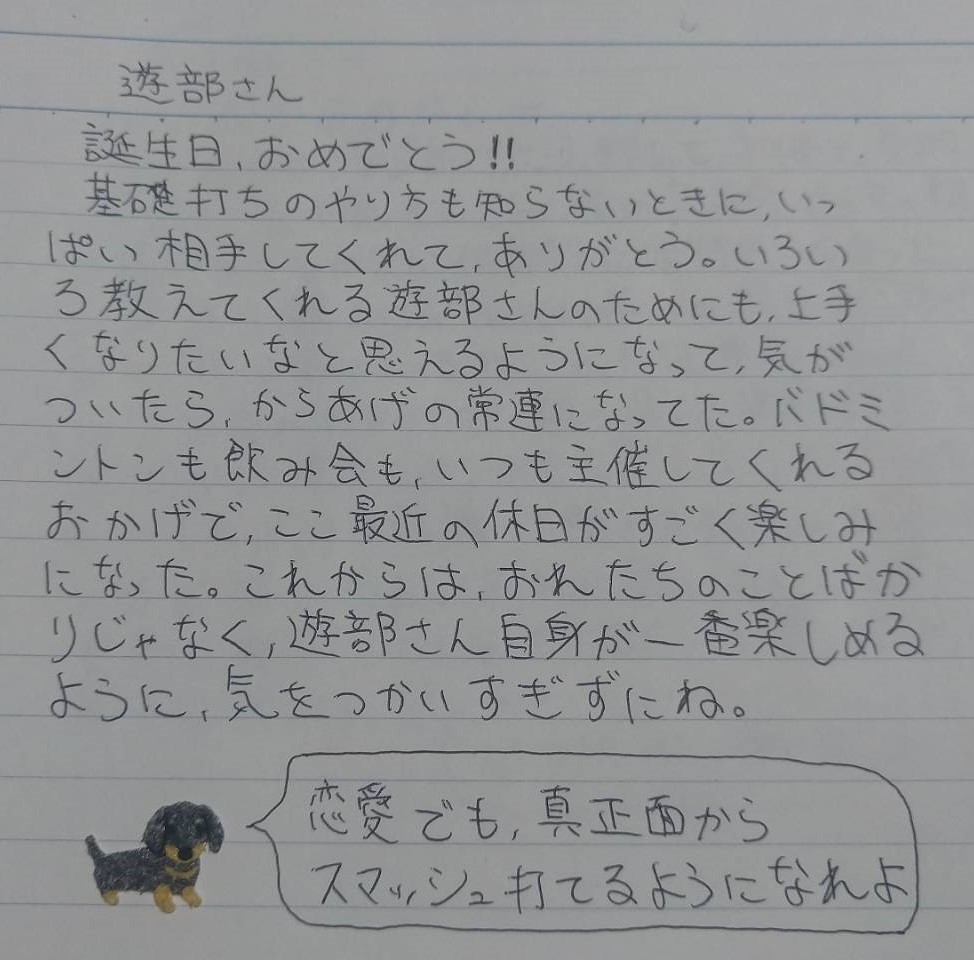 遊部さん
誕生日、おめでとう!!
基礎打ちのやり方も知らないときに、いっ
ぱい相手してくれて、ありがとう。いろい
ろ教えてくれる遊部さんのためにも、上手
くなりたいなと思えるようになって、気が
ついたら、からあげの常連になってた。バドミ
ントンも飲み会も、いつも主催してくれる
おかげで、ここ最近の休日がすごく楽しみ
になった。これからは、おれたちのことばか
りじゃなく、遊部さん自身が一番楽しめる
ように、気をつかいすぎずにね。
恋愛でも、真正面から
スマッシュ打てるようになれよ